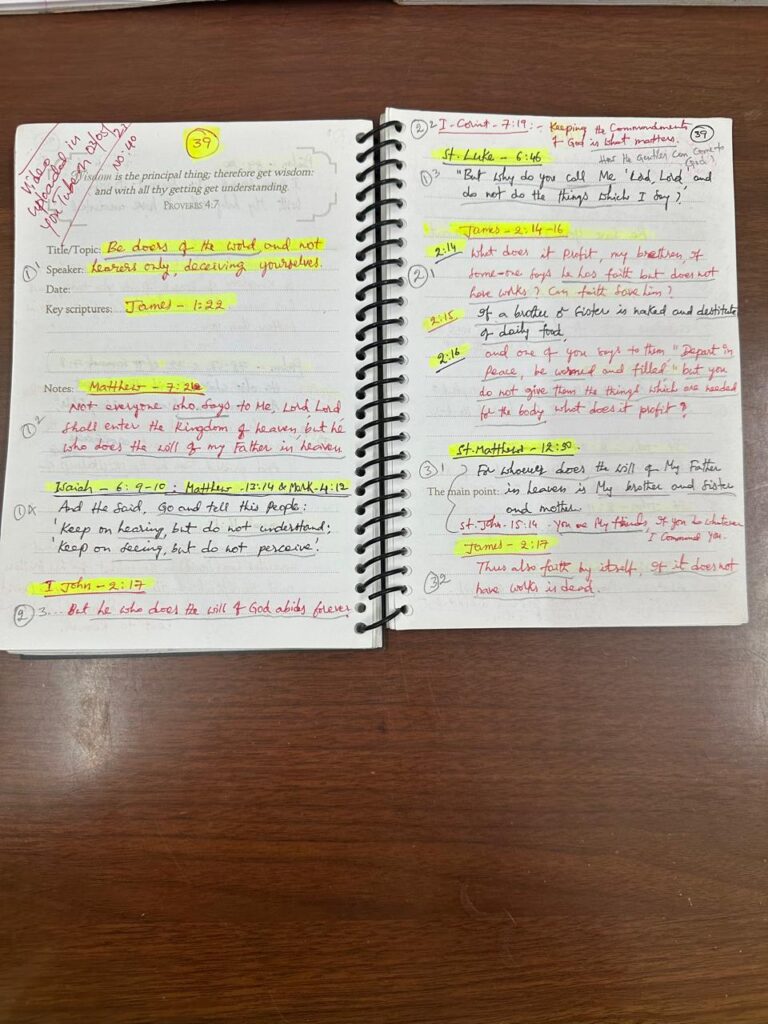 video
uploaded in
YouTube on 02/05/22
No: 40
39
Wisdom is the principal thing; therefore get wisdom:
and with all thy getting get understanding.
Proverbs 4:7
Title/Topic: Be doers of the word, and not
①1 Speaker: hearers only, deceiving yourselves.
Date:
Key scriptures: James - 1:22
Notes: Matthew - 7:21
'Not everyone who says to Me, Lord, Lord
①2 shall enter the Kingdom of heaven, but he
who does the will of my Father in heaven
Isaiah - 6: 9-10 : Matthew - 13:14 & Mark - 4:12
① And He Said, Go and tell this People:
'Keep on hearing, but do not understand;
'Keep on seeing, but do not perceive'.
I John - 2:17
② 3... But he who does the will of God abides forever
②2 I - Corint - 7:19 :- Keeping the Commandments
of God is what matters.
39
St. Luke - 6:46
How the Gentles Can Come to
God?
①3 "But why do you call Me 'Lord, Lord, and
do not do the things which I say?
James - 2:14-16
2:14 What does it profit, my brethren, if
②1 Some-one says he has faith but does not
have works? Can faith save him?
2:15 If a brother or Sister is naked and destitute
of daily food,
2:16 and one of you says to them "Depart in
Peace, be warmed and filled" but you
do not give them the things which are needed
for the body what does it profit?
St. Matthew - 12:50.
③1 For whoever does the will of My Father
The main point: in heaven is My brother and Sister
and mother.
St. John - 15:14 - You are My friends, If you do whatever
I Command you.
James - 2:17
Thus also faith by itself, if it does not
③2 have works is dead.